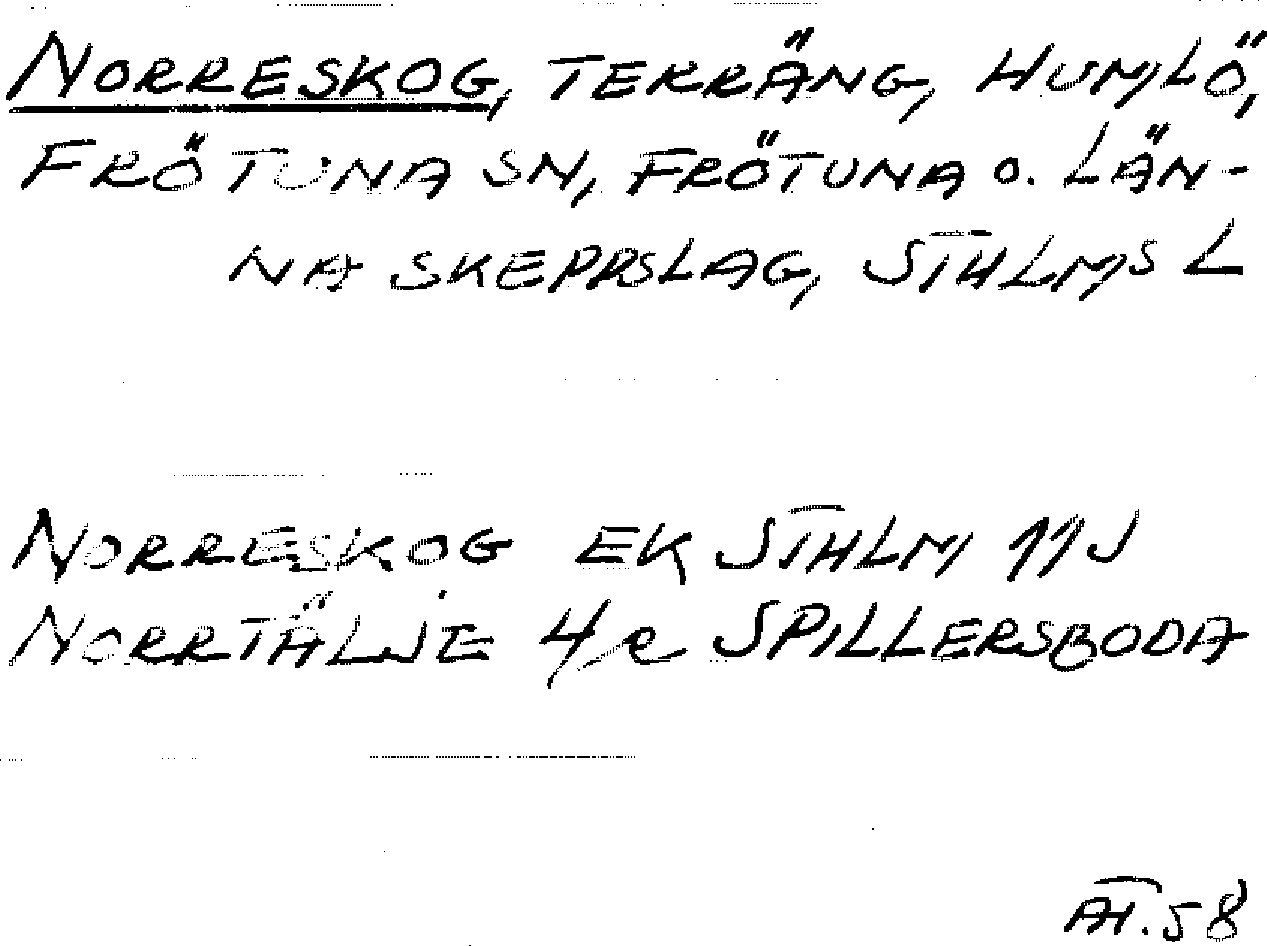 NORRESKOG, TERRÄNG, HUMLÖ,
FRÖTUNA SN, FRÖTUNA O. LÄN-
NA SKEPPSLAG, STHLMS L
NORRESKOG EK STHLM 11J
NORRTÄLJE 4/e SPILLERSBODA
AT. 58